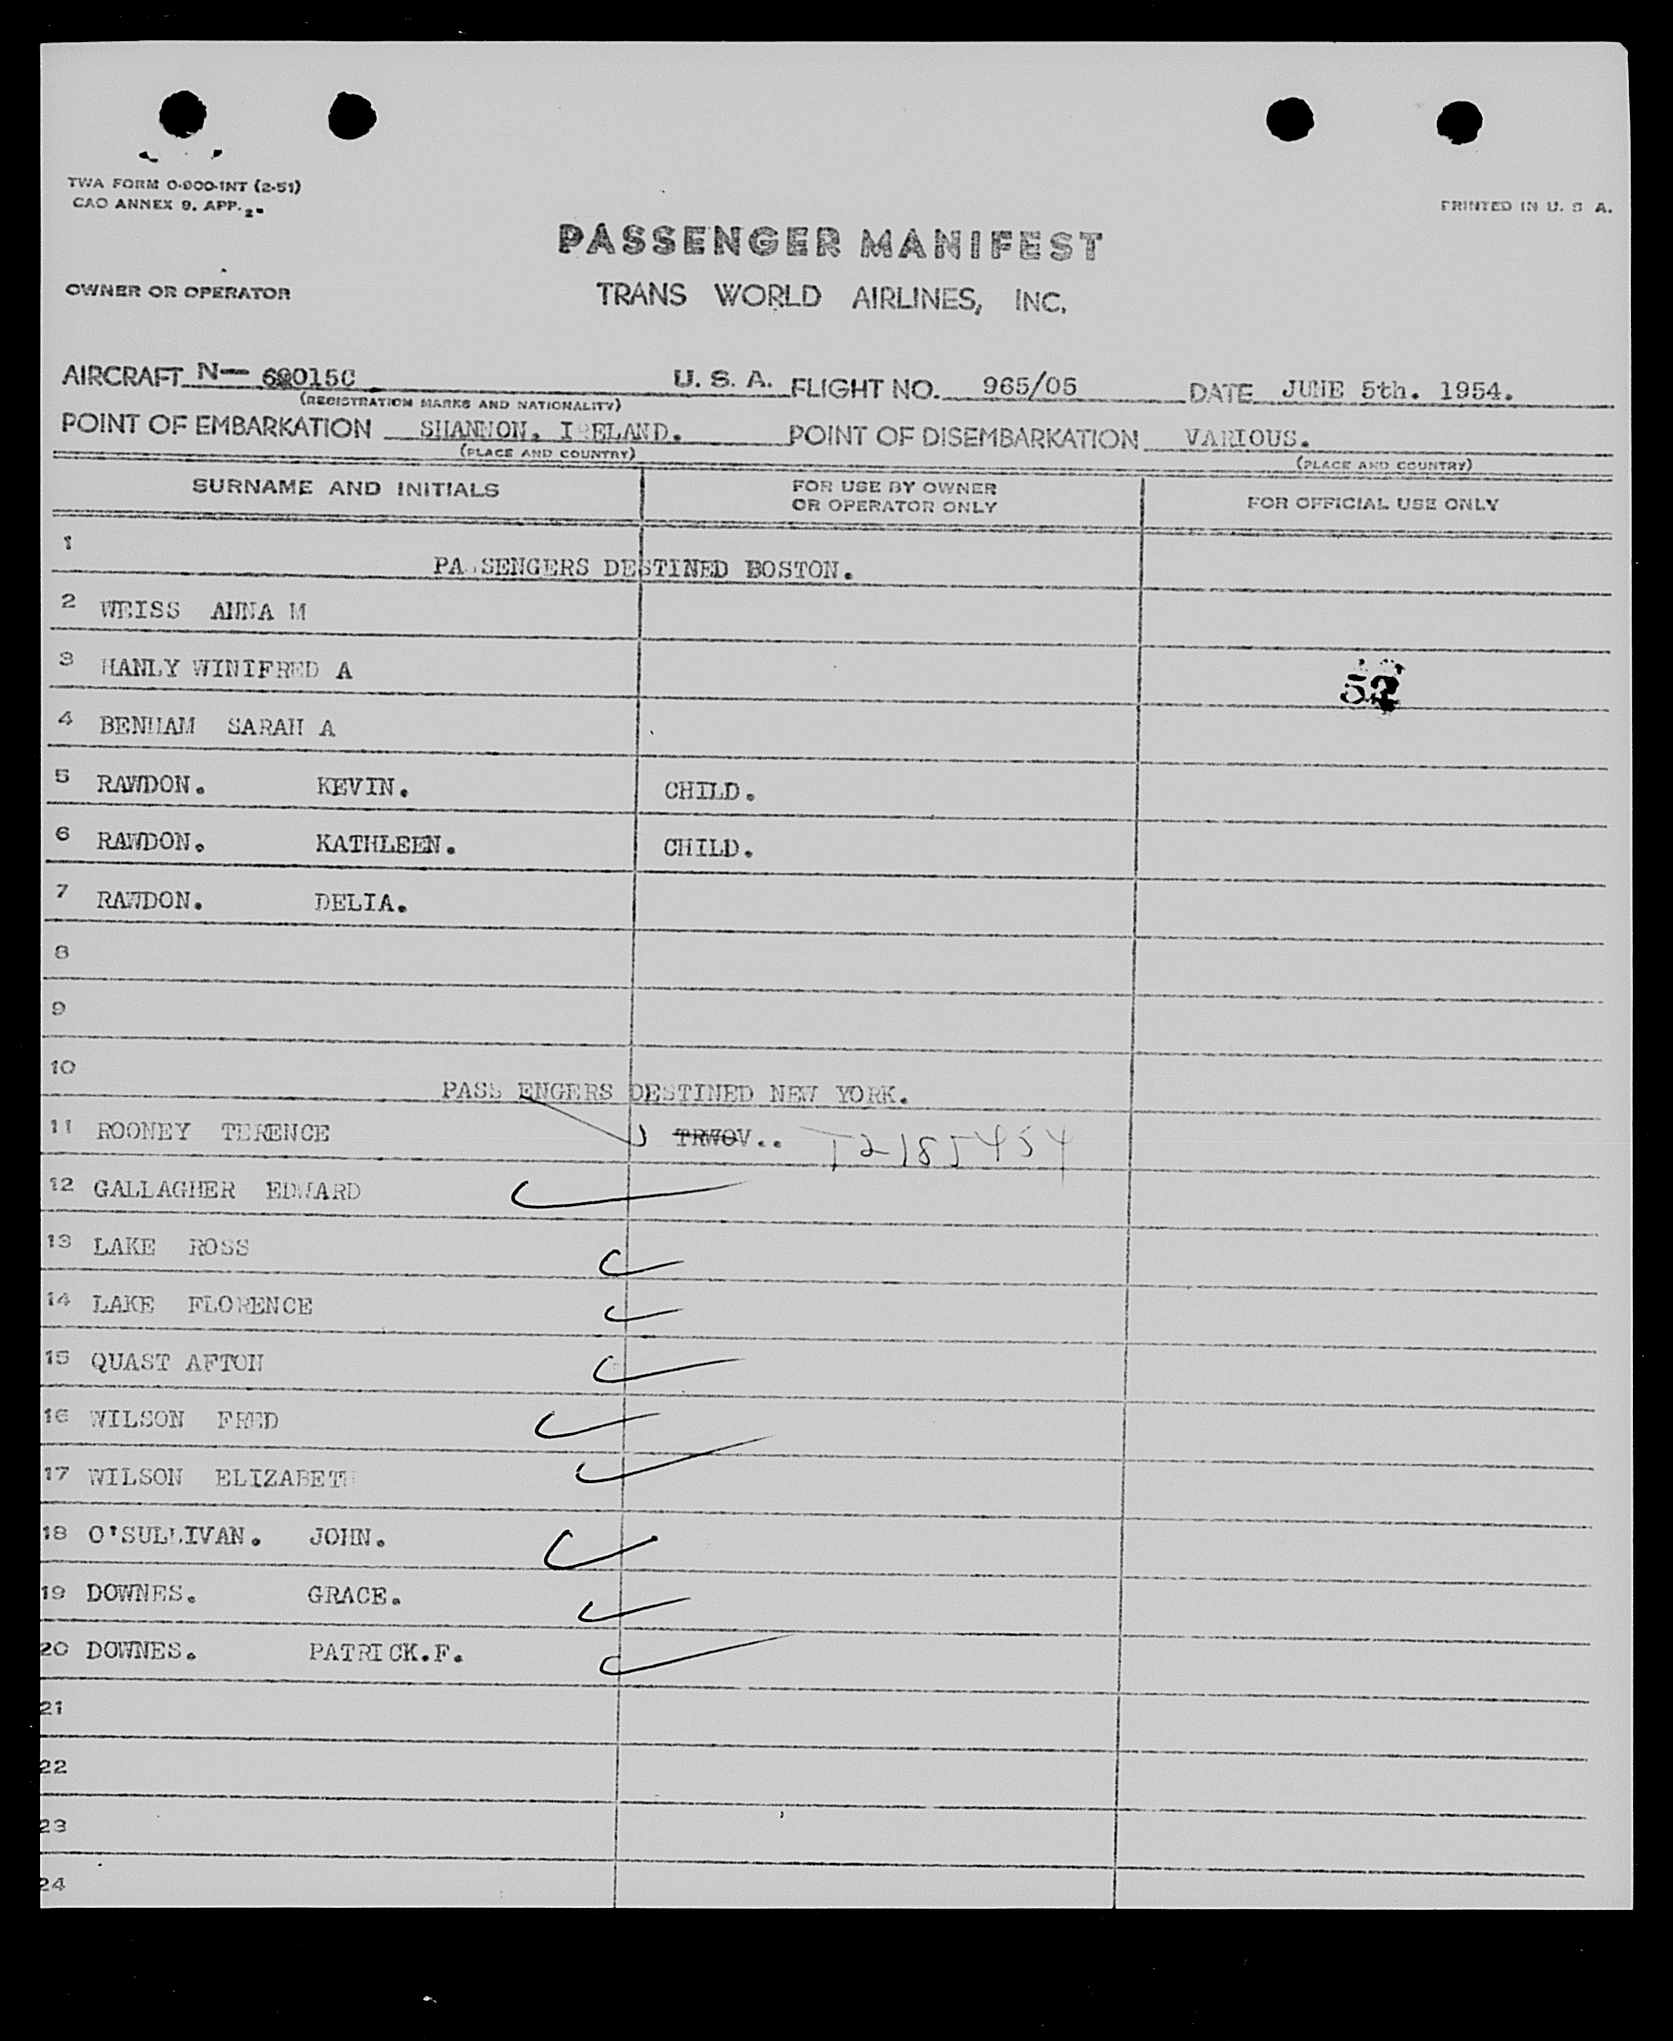 TWA FORM O-900-INT (2-51)
CAO ANNEX 9, APP. 2.
PRINTED IN U. S A.
PASSENGER MANIFEST
OWNER OR OPERATOR
TRANS WORLD AIRLINES, INC.
AIRCRAFT N— U. S. A. FLIGHT NO. 965/05 DATE JUNE 5th. 1954.
(REGISTRATION MARKS AND NATIONALITY)
POINT OF EMBARKATION SHANNON, IRELAND. POINT OF DISEMBARKATION VARIOUS.
(PLACE AND COUNTRY) (PLACE AND COUNTRY)
SURNAME AND INITIALS FOR USE BY OWNER OR OPERATOR ONLY FOR OFFICIAL USE ONLY
1 PASSENGERS DESTINED BOSTON.
2 WEISS ANNA M
3 HANLY WINIFRED A
4 BENHAM SARAH A
5 RAWDON. KEVIN. CHILD.
6 RAWDON. KATHLEEN. CHILD.
7 RAWDON. DELIA.
8
9
10 PASS ENGERS DESTINED NEW YORK.
11 ROONEY TERENCE TRWOV.. T2185454
12 GALLAGHER EDWARD
13 LAKE ROSS
14 LAKE FLORENCE
15 QUAST AFTON
16 WILSON FRED
17 WILSON ELIZABETH
18 O'SULLIVAN. JOHN.
19 DOWNES. GRACE.
20 DOWNES. PATRICK.F.
21
22
23
24